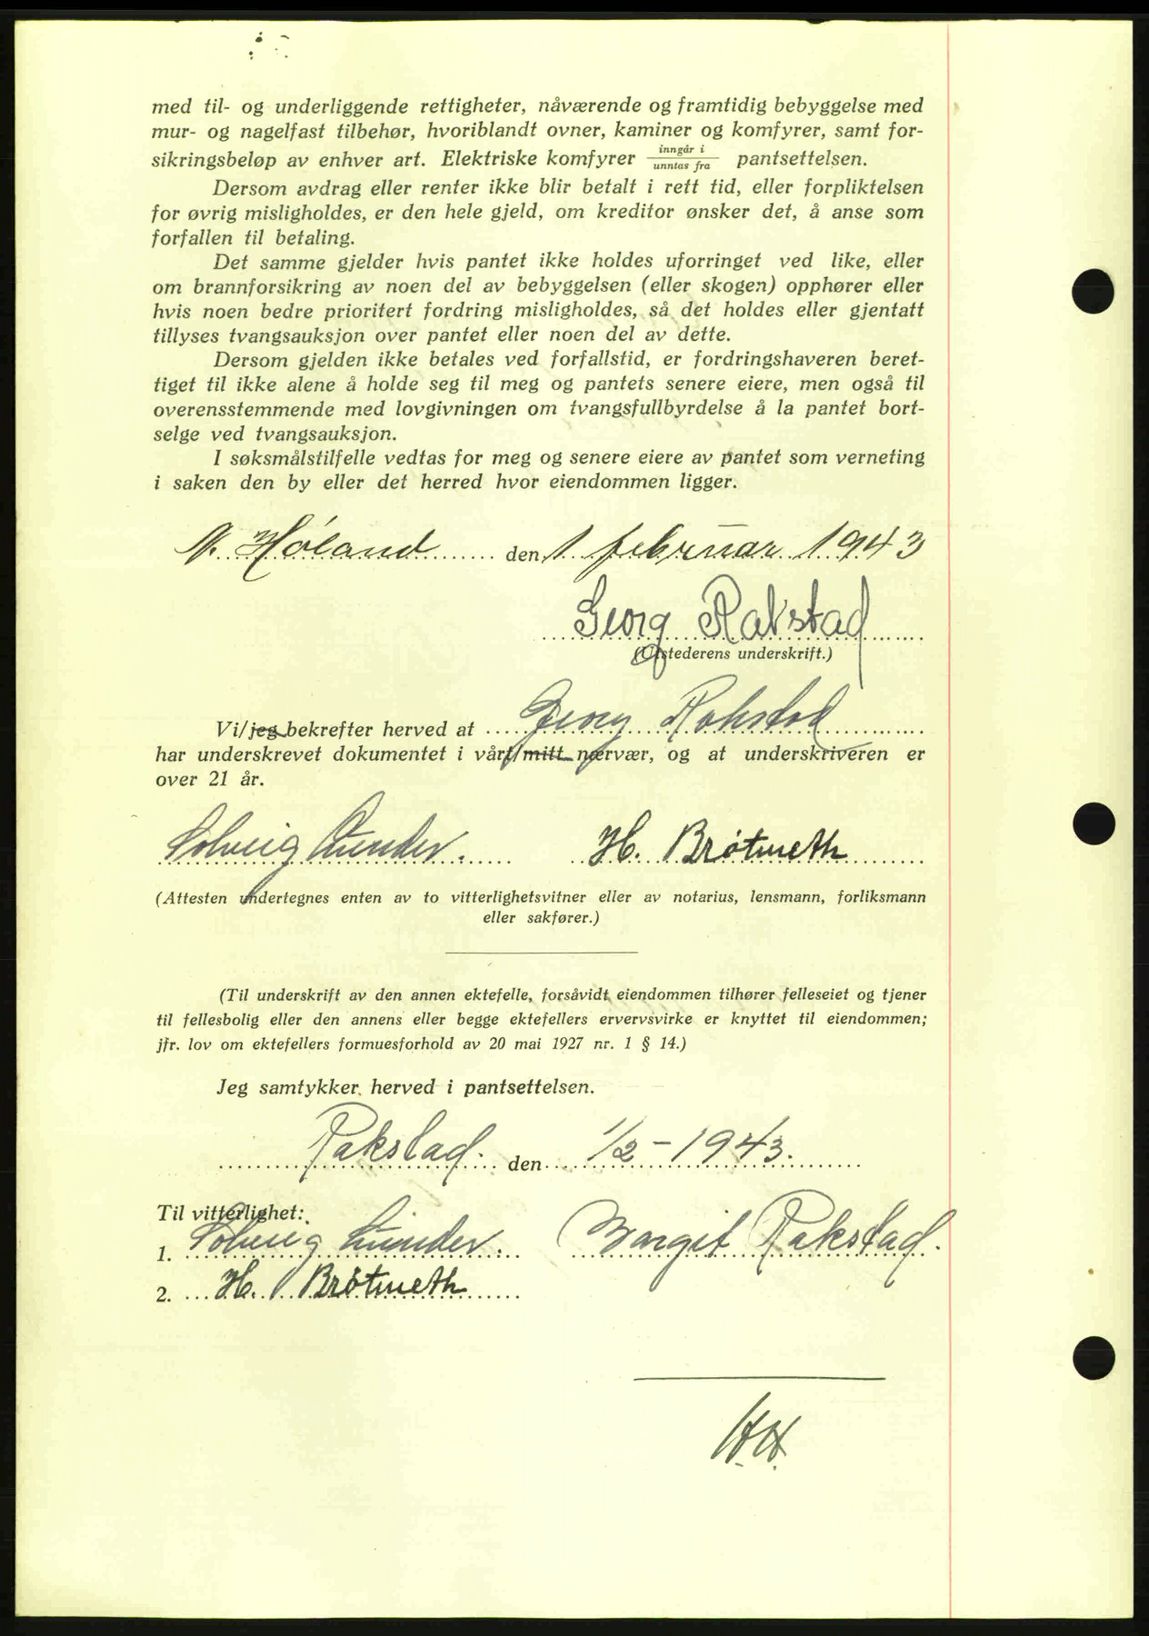 med til- og underliggende rettigheter, nåværende og framtidig bebyggelse med
mur- og nagelfast tilbehør, hvoriblandt ovner, kaminer og komfyrer, samt for-
sikringsbeløp av enhver art. Elektriske komfyrer inngår i / unntas fra pantsettelsen.
Dersom avdrag eller renter ikke blir betalt i rett tid, eller forpliktelsen
for øvrig misligholdes, er den hele gjeld, om kreditor ønsker det, å anse som
forfallen til betaling.
Det samme gjelder hvis pantet ikke holdes uforringet ved like, eller
om brannforsikring av noen del av bebyggelsen (eller skogen) opphører eller
hvis noen bedre prioritert fordring misligholdes, så det holdes eller gjentatt
tillyses tvangsauksjon over pantet eller noen del av dette.
Dersom gjelden ikke betales ved forfallstid, er fordringshaveren beret-
tiget til ikke alene å holde seg til meg og pantets senere eiere, men også til
overensstemmende med lovgivningen om tvangsfullbyrdelse å la pantet bort-
selge ved tvangsauksjon.
I søksmålstilfelle vedtas for meg og senere eiere av pantet som verneting
i saken den by eller det herred hvor eiendommen ligger.
Høland den 1 februar 1943
Georg Rakstad
(Utstederens underskrift.)
Vi/jeg bekrefter herved at Georg Rakstad
har underskrevet dokumentet i vårt/mitt nærvær, og at underskriveren er
over 21 år.
Solveig Lunder. H. Brøtmeth
(Attesten undertegnes enten av to vitterlighetsvitner eller av notarius, lensmann, forliksmann
eller sakfører.)
(Til underskrift av den annen ektefelle, forsåvidt eiendommen tilhører felleseiet og tjener
til fellesbolig eller den annens eller begge ektefellers ervervsvirke er knyttet til eiendommen;
jfr. lov om ektefellers formuesforhold av 20 mai 1927 nr. 1 § 14.)
Jeg samtykker herved i pantsettelsen.
Rakstad. den 1/2-1943.
Til vitterlighet:
1. Solveig Lunder. Margit Rakstad.
2. H. Brøtmeth
H.H.